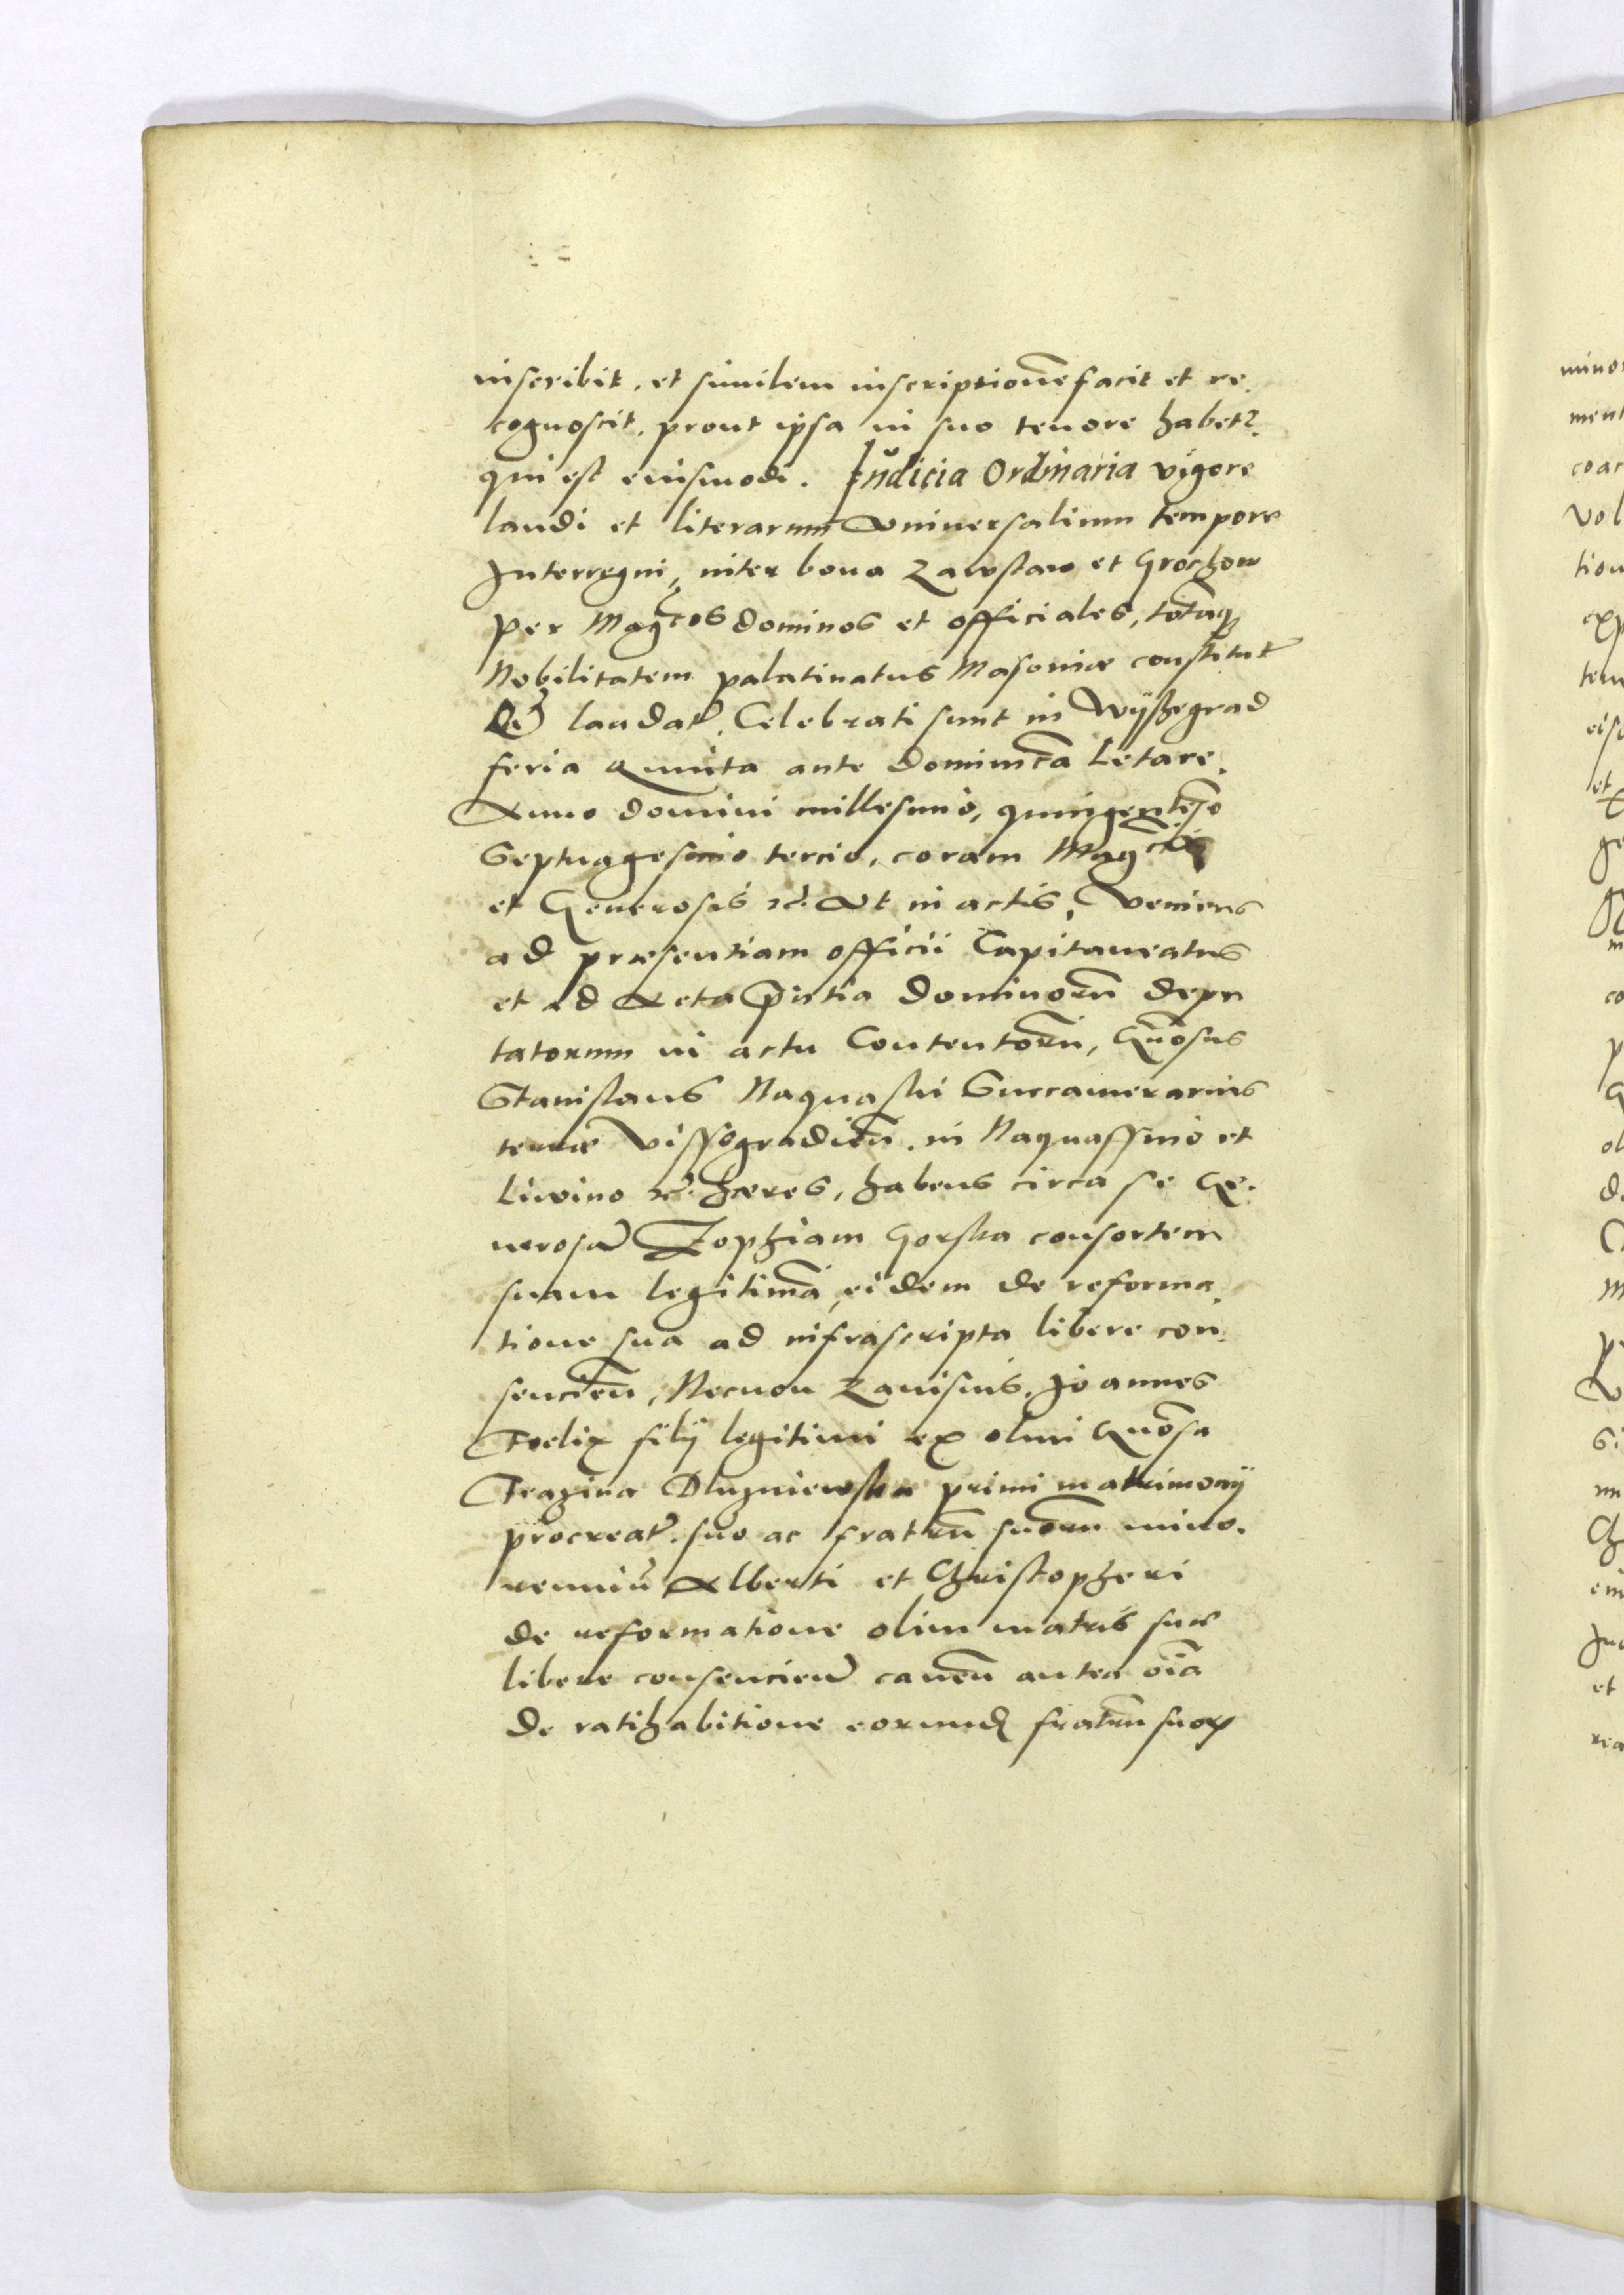 inscribit, et similem inscriptionē facit et re.
cognoscit, prout ipsa in suo tenore habet̉.
qui est eiusmodi. Iudicia Ordinaria vigore
laudi et literarum vniuersalium tempore
Interregni, inter bona Zawstaw et Grochow
per Magcos dominos et officiales, totāq
Nobilitatem palatinatus Masoviæ constitut̉
laudat̉. Celebrati sunt in Wÿszegrad
feria Quinta ante dominicā Letare.
Anno domini millesimo, quingentēso
Septuagesimo tercio, coram Magcis
et Generosis &c. Vt in actis, Veniens
ad præsentiam officii Capitaneatus
et ad Acta p̄ntia dominorū depu
tatorum in actu Contentorū, Gn̄osus
Stanislaus Naquaski Succamerarius
terræ Vissegradieñ. in Naquassino et
Liwino &c. hæres, habens circa se Ge.
nerosā Zophiam Gorska consortem
suam legitimā, eidem de reforma.
tione sua ad infrascripta libere con.
sencieñ, Necnon Zavisius, Joannes
Foelix filÿ legitimi ex olim Gn̄osa
Frazina Dluzniewska primi matrimonÿ
procreat̉. suo ac fratrū suorū mino.
renniū Alberti et Christopheri
de reformatione olim matris suæ
libere consencieñ caueñ antea oīa
de ratihabitione eorund fratrū suor
mino
men
coar
vol
et